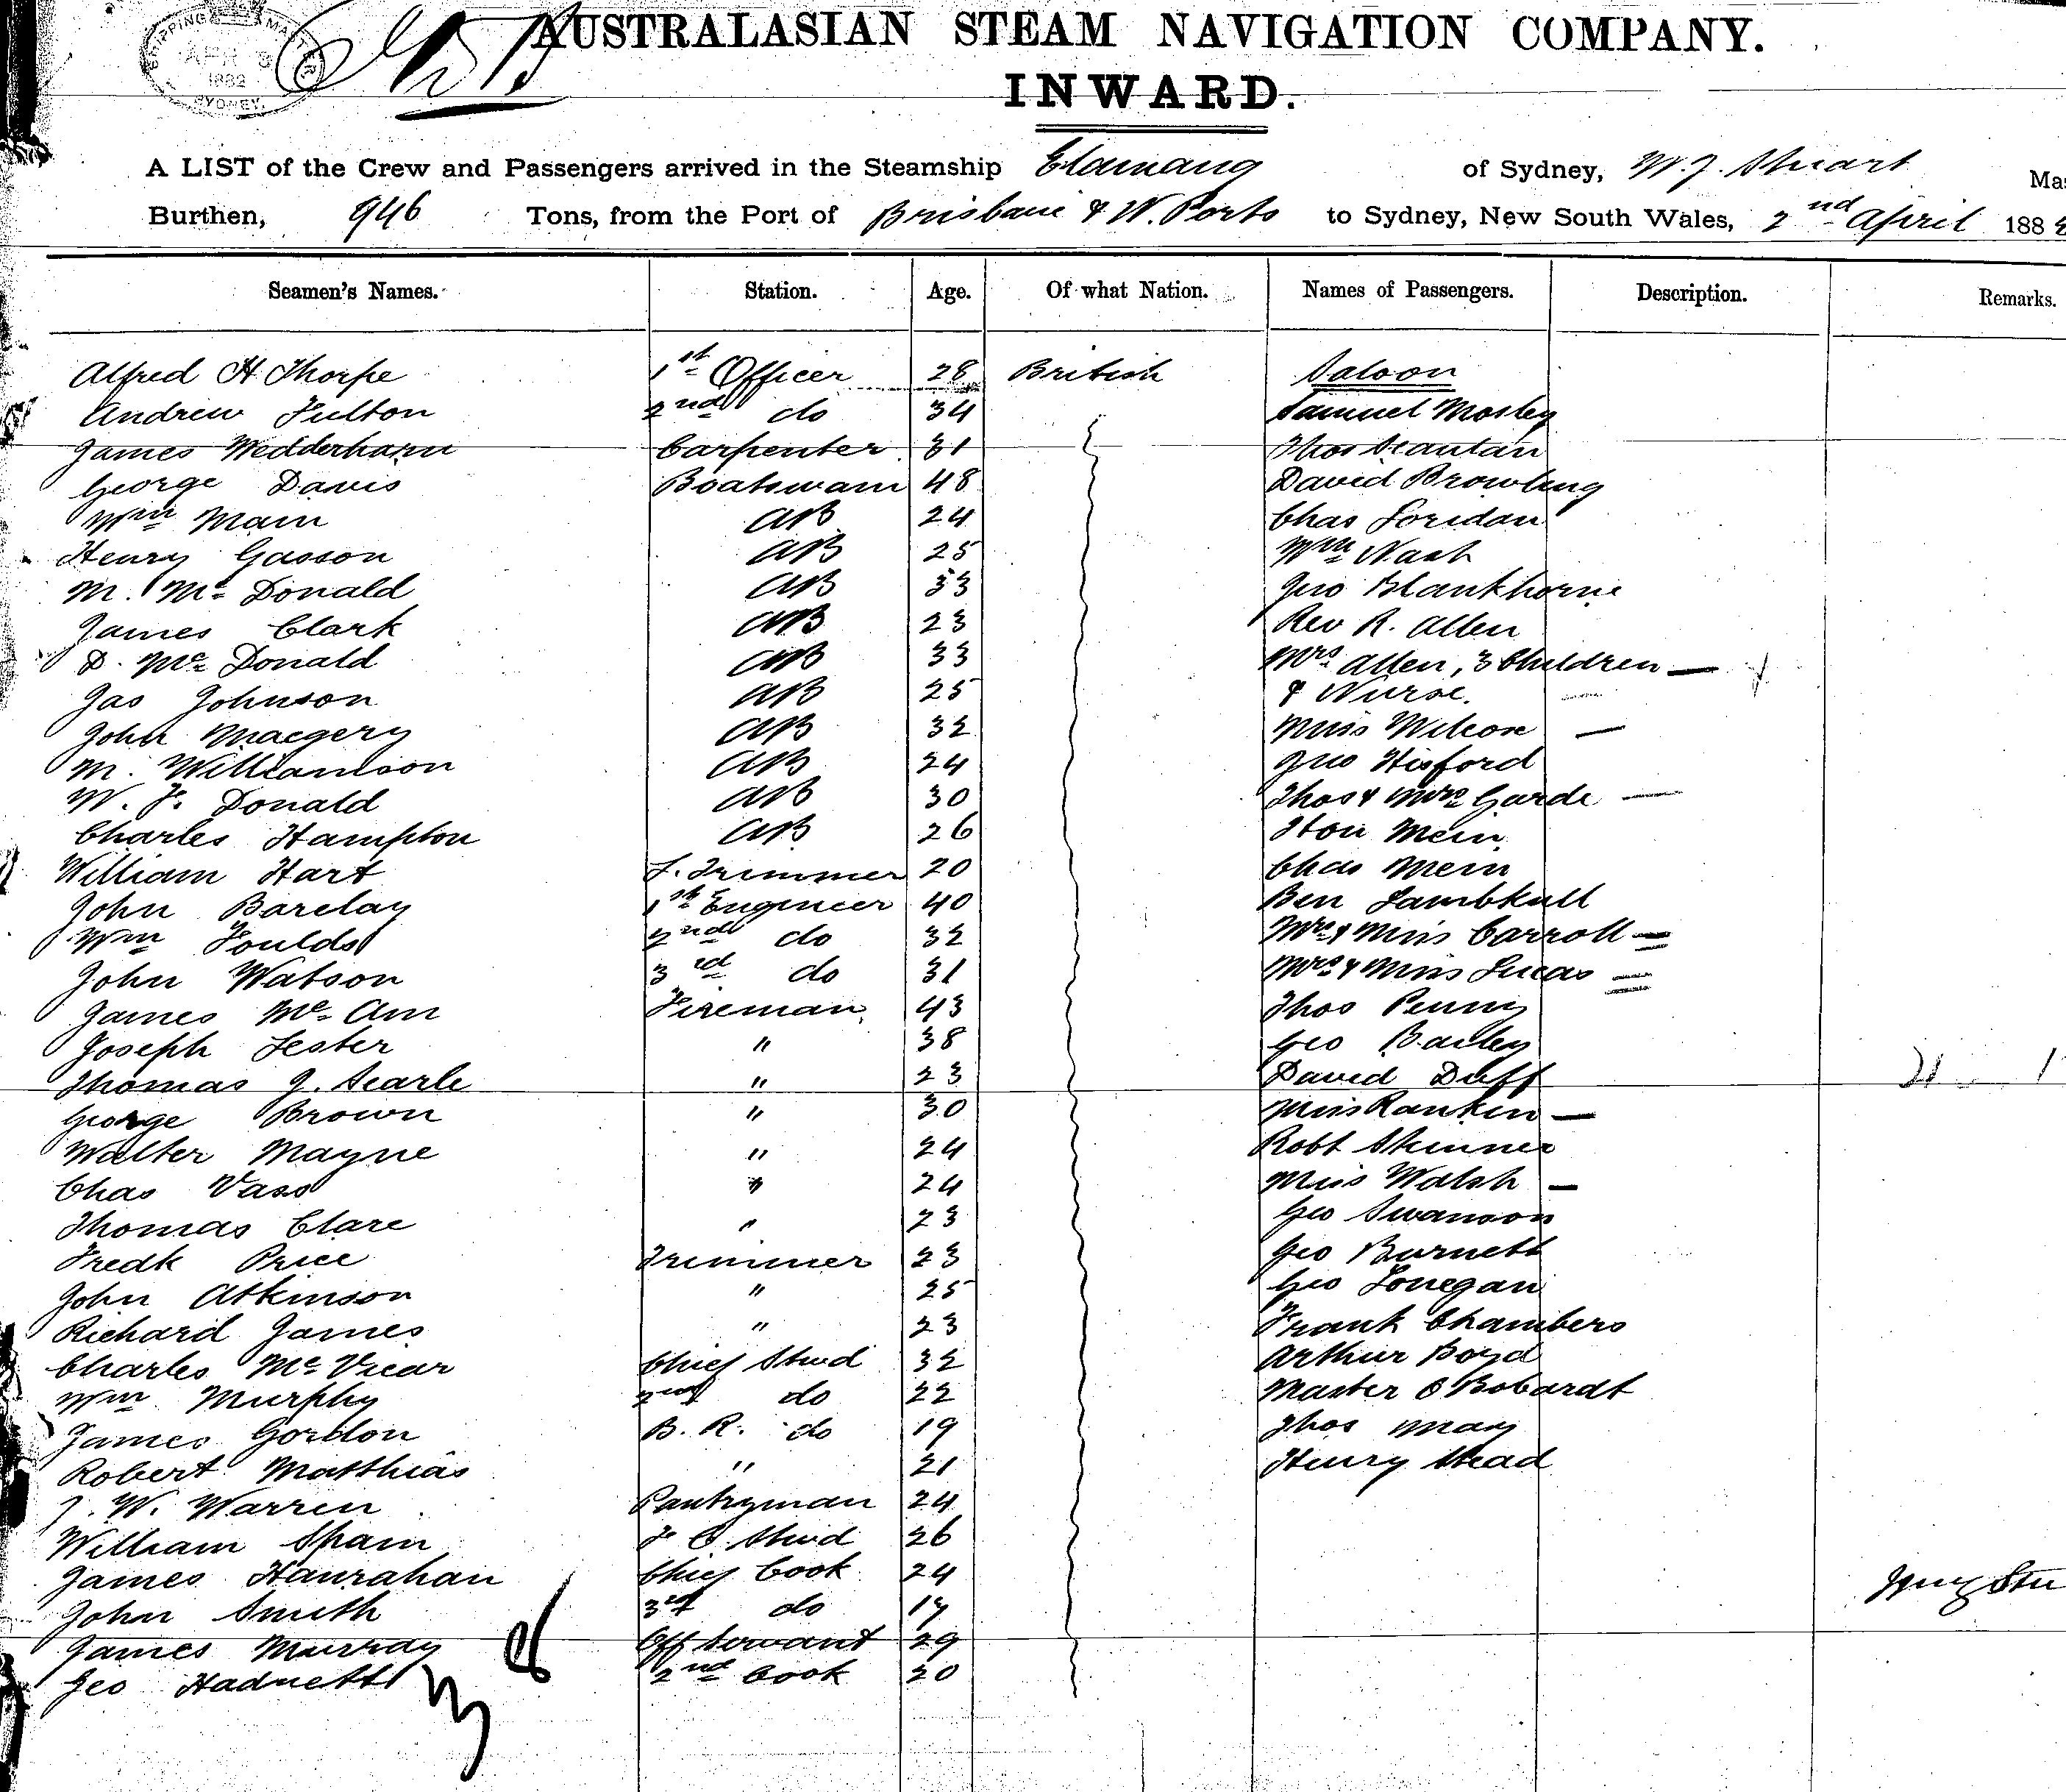 SHIPPING MASTER'S
APR 3
1882
SYDNEY.
AUSTRALASIAN STEAM NAVIGATION COMPANY.
INWARD.
A LIST of the Crew and Passengers arrived in the Steamship Elamang of Sydney, W. J. Stuart Mas
Burthen, 946 Tons, from the Port of Brisbane & W. Ports to Sydney, New South Wales, 2nd April 188
Seamen's Names. Station. Age. Of what Nation. Names of Passengers. Description. Remarks.
Alfred H Thorpe 1st Officer 28 British Saloon
Andrew Fulton 2nd do 34 Samuel Mosley
James Wedderharn Carpenter 31 Thos Stantan
George Davis Boatswain 48 David Browling
Wm Main AB 24 Chas Loridan
Henry Gasson AB 25 Wm Nash
M. Mc Donald AB 33 Jno Blankhorne
James Clark AB 23 Rev R. Allen
D. Mc Donald AB 33 Mrs Allen, 3 Children —
Jas Johnson AB 25 & Nurse.
John Macgery AB 32 Miss Wilcox —
M. Williamson AB 24 Jno Hisford
W. F. Donald AB 30 Thos & Mrs Garde —
Charles Hampton AB 26 Hon Mein
William Hart L. Trimmer 20 Chas Mein
John Barclay 1st Engineer 40 Ben Lambkull
Wm Foulds 2nd do 32 Mrs & Miss Carroll =
John Watson 3rd do 31 Mrs & Miss Lucas =
James Mc Am Fireman 43 Thos Penny
Joseph Lester " 38 Geo Bailey
Thomas J. Searle " 23 David Duff 21
George Brown " 30 Miss Rankin —
Walter Mayne " 24 Robt Skinner
Chas Vass " 24 Miss Walsh —
Thomas Clare " 23 Geo Swanson
Fredk Price Trimmer 23 Geo Burnett
John Atkinson " 25 Geo Lonegan
Richard James " 23 Frank Chambers
Charles Mc Vicar Chief Stwd 32 Arthur Boyd
Wm Murphy 2nd do 22 Master O Bobardt
James Gordon B. R. do 19 Thos May
Robert Matthias " 21 Henry Stead
J. W. Warren Pantryman 24
William Spain F C Stwd 26
James Hanrahan Chief Cook 24
John Smith 3rd do 17
James Murray Off Servant 29
Geo Hadnett 2nd Cook 20